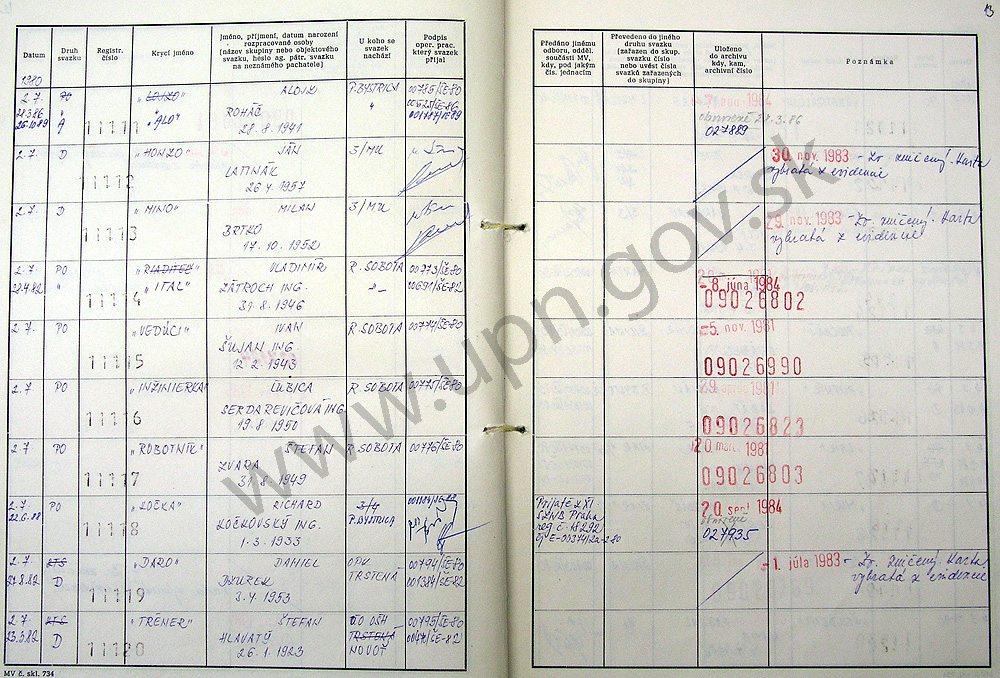 13
Datum
Druh svazku
Registr. číslo
Krycí jméno
Jméno, příjmení, datum narození rozpracované osoby (název skupiny nebo objektového svazku, heslo ag. pátr. svazku na neznámého pachatele)
U koho se svazek nachází
Podpis oper. prac. který svazek přijal
Předáno jinému odboru, odděl. součásti MV, kdy, pod jakým čís. jednacím
Převedeno do jiného druhu svazku (zařazen do skup. svazku číslo nebo uvést čísla svazků zařazených do skupiny)
Uloženo do archivu kdy, kam, archivní číslo
Poznámka
1980
2.7. PO „LOJZO" ALOJZ P.BYSTRICA 00785/ŠE-80
21.3.86 " "
26.10.89 A 11111 „ALO" ROHÁČ
28.8.1941
obnovené 21.3.86
027889
2.7. D „HONZO" JÁN 3/MK
11112 LATINÁK
26.4.1957
30. nov. 1983 - Zv. zničený. Karta
vybratá z evidencie
2.7. D „MINO" MILAN 3/MK
11113 BRTKO
17.10.1952
29. nov. 1983 - Zv. zničený. Karta
vybratá z evidencie
2.7. PO „RIADITEĽ" VLADIMÍR R. SOBOTA 00773/ŠE-80
22.4.82 " 11114 „ITAL" ZÁTROCH ING. -"- 00691/ŠE-82
31.8.1946
- 8. júna 1984
09026802
2.7. PO „VEDÚCI" IVAN R. SOBOTA 00774/ŠE-80
11115 ŠUJAN ING.
12.2.1943
- 5. nov. 1981
09026990
2.7 PO „INŽINIERKA" ĽUBICA R. SOBOTA 00775/ŠE-80
11116 SERDAREVIČOVÁ ING.
19.8.1950
1981
09026823
2.7 PO „ROBOTNÍK" ŠTEFAN R. SOBOTA 00776/ŠE-80
11117 ZVARA
31.8.1949
20. marc. 1981
09026803
2.7. PO „KOČKA" RICHARD 3/4
22.6.88 11118 KOČKOVSKÝ ING. P.BYSTRICA
1.3.1933
Prijaté z XI
SNB Praha
reg. č. 18292
20. sept. 1984
obnovené
027935
2.7. KTS „DARO" DANIEL OPK 00794/ŠE-80
27.8.82 D 11119 DZUREK TRSTENÁ 001384/ŠE-82
3.4.1953
- 1. júla 1983 - Zv. zničený. Karta
vybratá z evidencie
2.7. KTS „TRÉNER" ŠTEFAN OO OSH 00795/ŠE-80
23.3.82 D 11120 HLAVATÝ TRSTENÁ
26.1.1923 NOVOŤ
MV č. skl. 734
www.upn.gov.sk